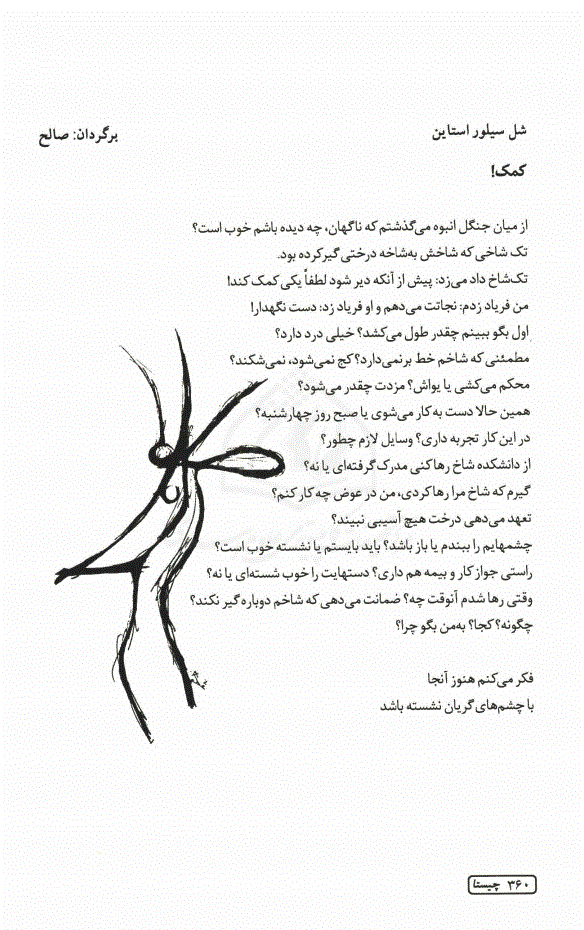 شل سیلور استاین
برگردان: صالح
کمک!
از میان جنگل انبوه می‌گذشتم که ناگهان، چه دیده باشم خوب است؟
تک شاخی که شاخش به‌شاخه درختی گیرکرده بود.
تک‌شاخ داد می‌زد: پیش از آنکه دیر شود لطفاً یکی کمک کند!
من فریاد زدم: نجاتت می‌دهم و او فریاد زد: دست نگهدار!
اول بگو ببینم چقدر طول می‌کشد؟ خیلی درد دارد؟
مطمئنی که شاخم خط برنمی‌دارد؟ کج نمی‌شود، نمی‌شکند؟
محکم می‌کشی یا یواش؟ مزدت چقدر می‌شود؟
همین حالا دست به‌کار می‌شوی یا صبح روز چهارشنبه؟
در این کار تجربه داری؟ وسایل لازم چطور؟
از دانشکده شاخ رهاکنی مدرک گرفته‌ای یا نه؟
گیرم که شاخ مرا رهاکردی، من در عوض چه کار کنم؟
تعهد می‌دهی درخت هیچ آسیبی نبیند؟
چشمهایم را ببندم یا باز باشد؟ باید بایستم یا نشسته خوب است؟
راستی جواز کار و بیمه هم داری؟ دستهایت را خوب شسته‌ای یا نه؟
وقتی رها شدم آنوقت چه؟ ضمانت می‌دهی که شاخم دوباره گیر نکند؟
چگونه؟ کجا؟ به‌من بگو چرا؟
فکر می‌کنم هنوز آنجا
با چشم‌های گریان نشسته باشد
۳۶۰ چیستا